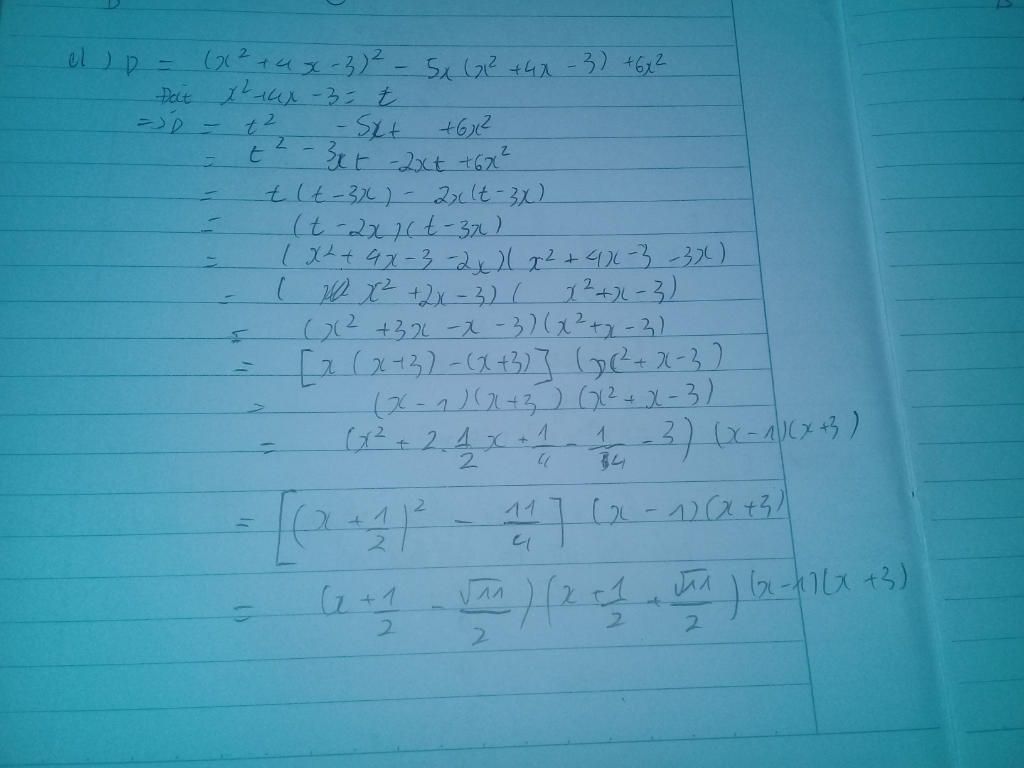 d) D = (x² + 4x - 3)² - 5x (x² + 4x - 3) + 6x²
Đặt x² + 4x - 3 = t
=> D = t² - 5xt + 6x²
= t² - 3xt - 2xt + 6x²
= t (t - 3x) - 2x (t - 3x)
= (t - 2x)(t - 3x)
= (x² + 4x - 3 - 2x)(x² + 4x - 3 - 3x)
= (x² + 2x - 3)(x² + x - 3)
= (x² + 3x - x - 3)(x² + x - 3)
= [x (x + 3) - (x + 3)] (x² + x - 3)
= (x - 1)(x + 3)(x² + x - 3)
= (x² + 2.1/2 x + 1/4 - 1/4 - 3) (x - 1)(x + 3)
= [(x + 1/2)² - 11/4] (x - 1)(x + 3)
= (x + 1/2 - √11/2)(x + 1/2 + √11/2)(x - 1)(x + 3)